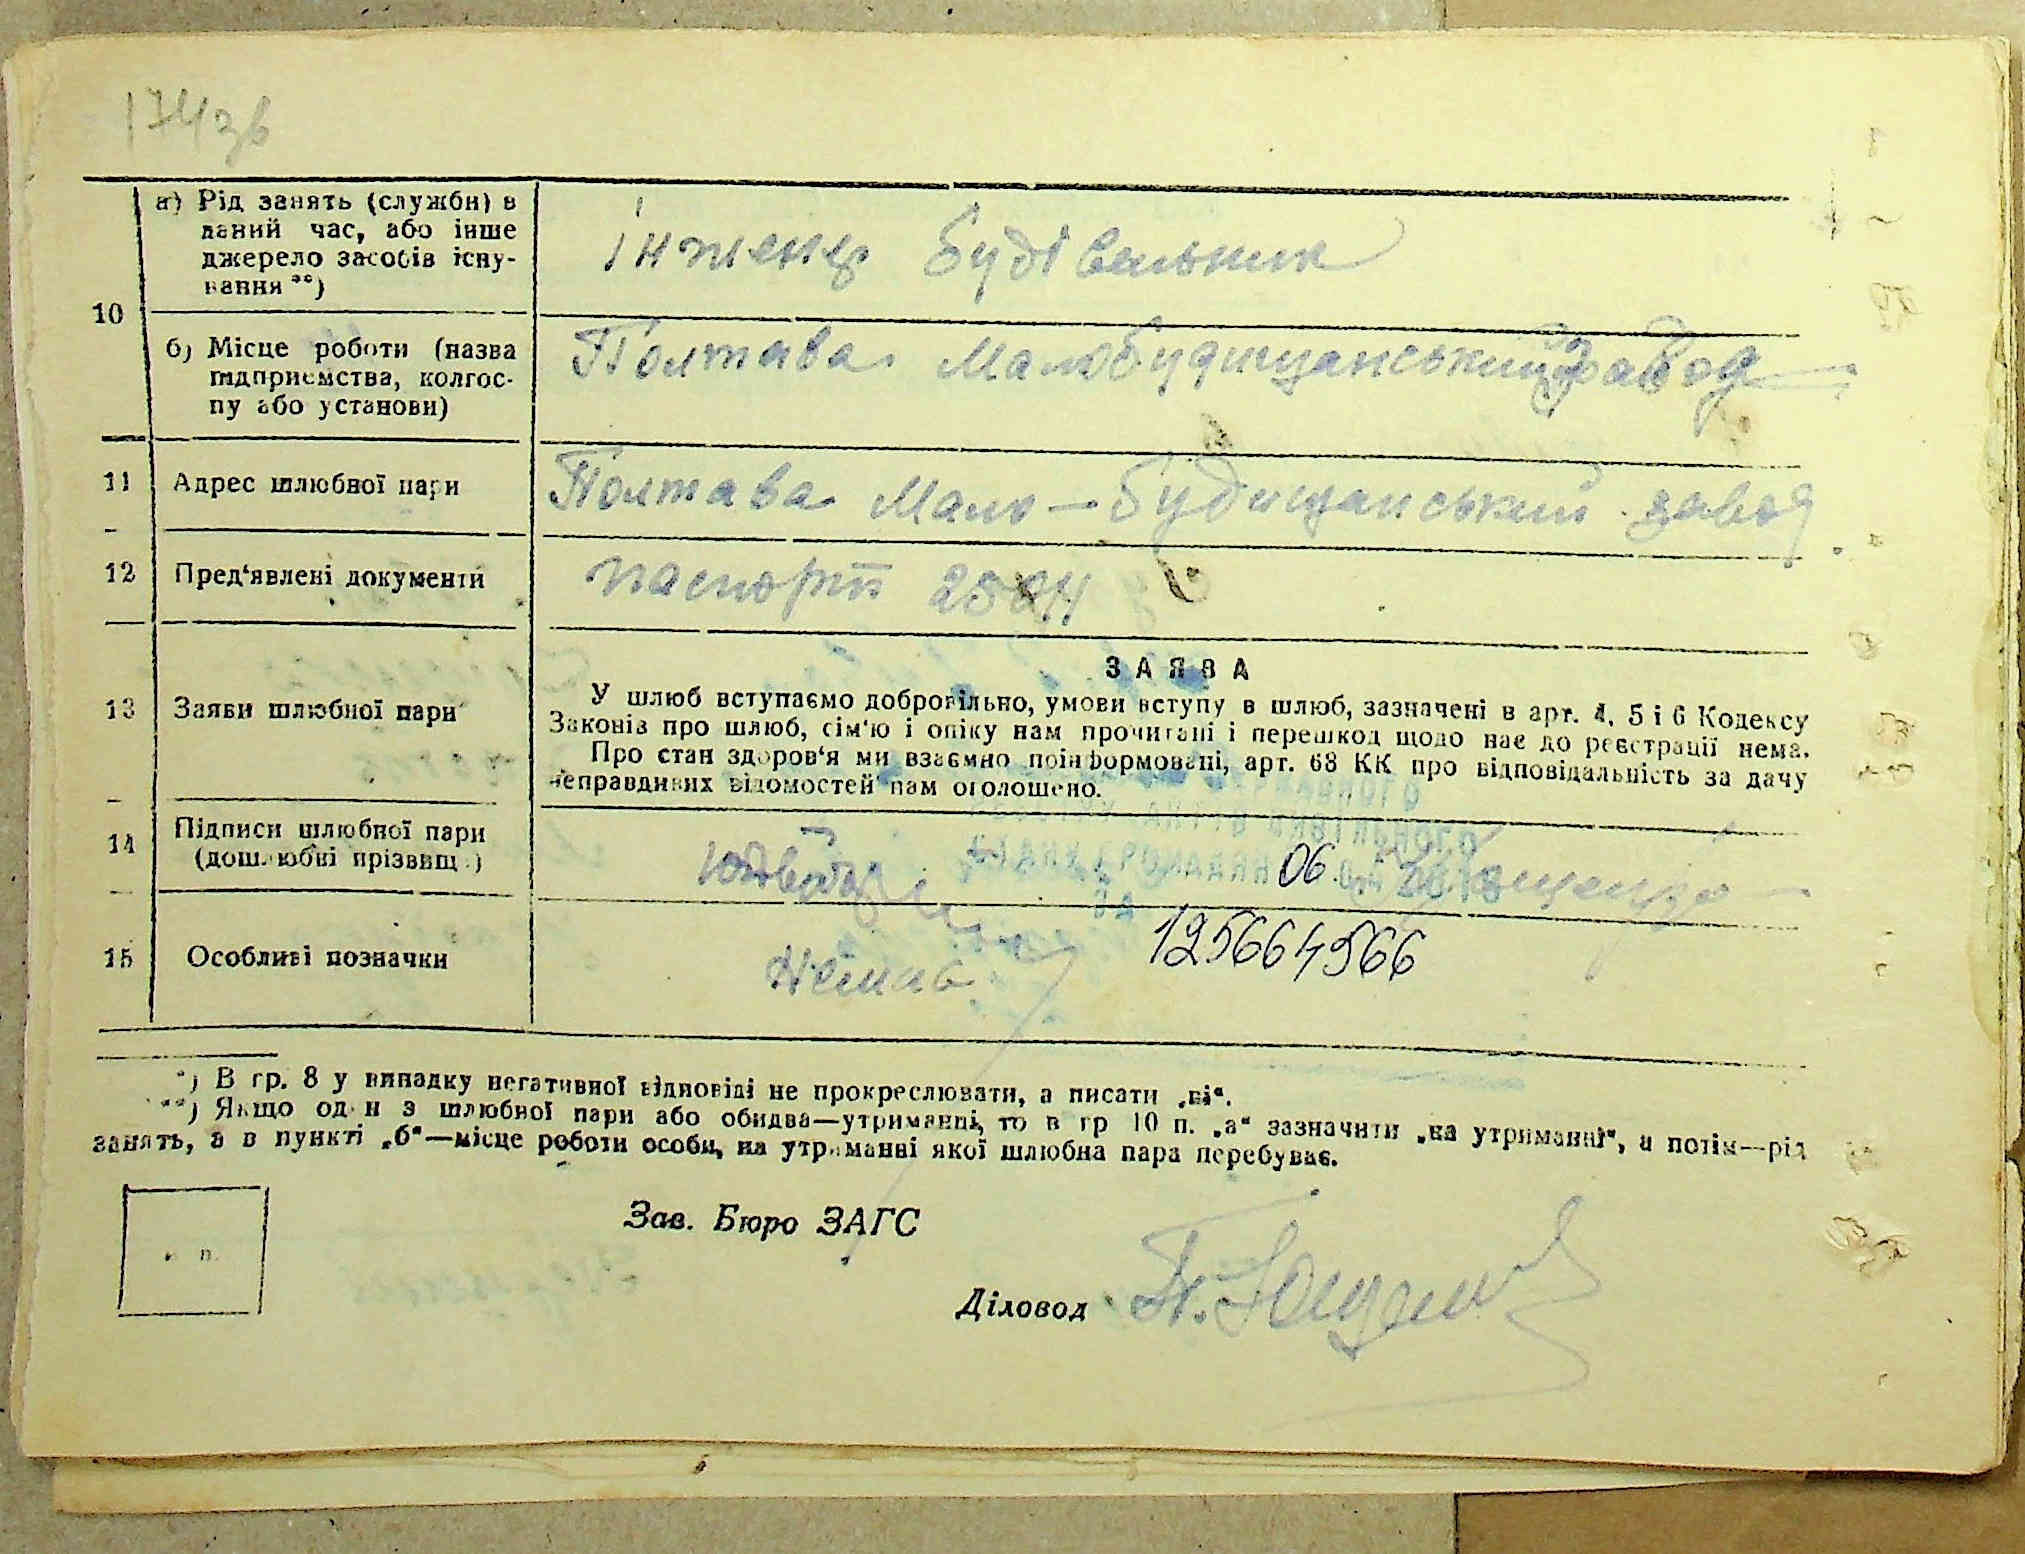 174зв
10
а) Рід занять (служби) в
даний час, або інше
джерело засобів існу-
вання **)
інженер будівельник
б) Місце роботи (назва
підприємства, колгос-
пу або установи)
Полтава Малобудищанський завод
11 Адрес шлюбної пари
Полтава Мало-будищанський завод
12 Пред'явлені документи
паспорт
13 Заяви шлюбної пари
ЗАЯВА
У шлюб вступаємо добровільно, умови вступу в шлюб, зазначені в арт. 4, 5 і 6 Кодексу
Законів про шлюб, сім'ю і опіку нам прочитані і перешкод щодо нас до реєстрації нема.
Про стан здоров'я ми взаємно поінформовані, арт. 68 КК про відповідальність за дачу
неправдивих відомостей нам оголошено.
14 Підписи шлюбної пари
(дошлюбні прізвищ.)
06
15 Особливі позначки
Немає
125664566
*) В гр. 8 у випадку негативної відповіді не прокреслювати, а писати „ні“.
**) Якщо один з шлюбної пари або обидва—утриманці, то в гр 10 п. „а“ зазначити „на утриманні“, а потім—рід
занять, а в пункті „б“—місце роботи особи, на утриманні якої шлюбна пара перебуває.
п.
Зав. Бюро ЗАГС
Діловод